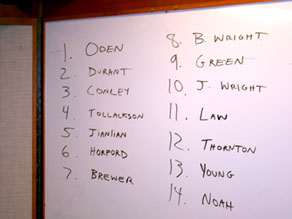 1. ODEN
2. DURANT
3. CONLEY
4 TOLLACKSON
5 JIANLIAN
6 HORFORD
7. BREWER
8. B. WRIGHT
9. GREEN
10. J. WRIGHT
11. LAW
12. THORNTON
13. YOUNG
14. NOAH